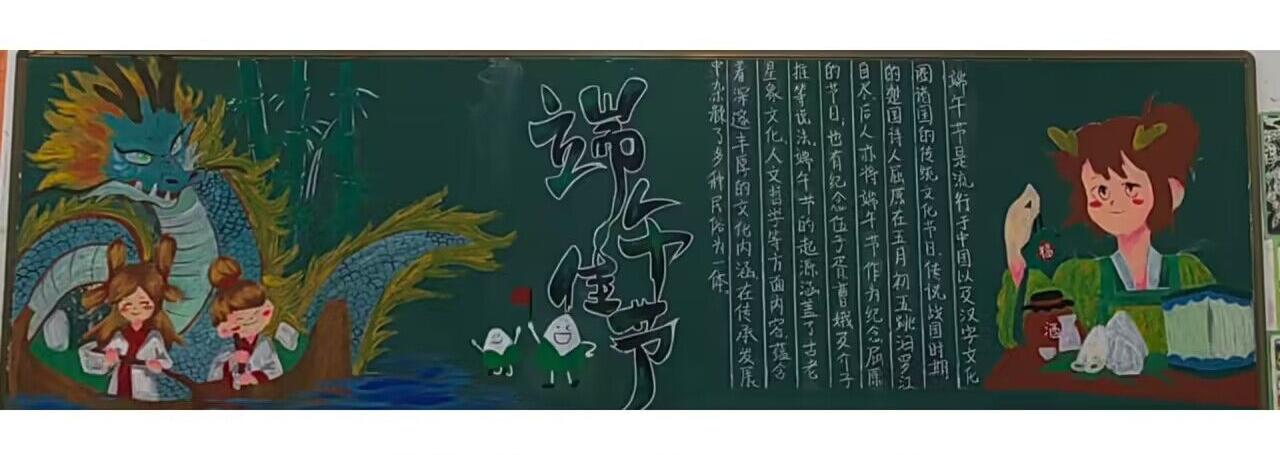 端午佳节
端午节是流行于中国以及汉字文化
圈诸国的传统文化节日，传说战国时期
的楚国诗人屈原在五月初五跳汨罗江
自尽，后人亦将端午节作为纪念屈原
的节日；也有纪念伍子胥曹娥及介子
推等说法。端午节的起源涵盖了古老
星象文化、人文哲学等方面内容，蕴含
着深邃丰厚的文化内涵，在传承发展
中杂糅了多种民俗为一体。
福
酒